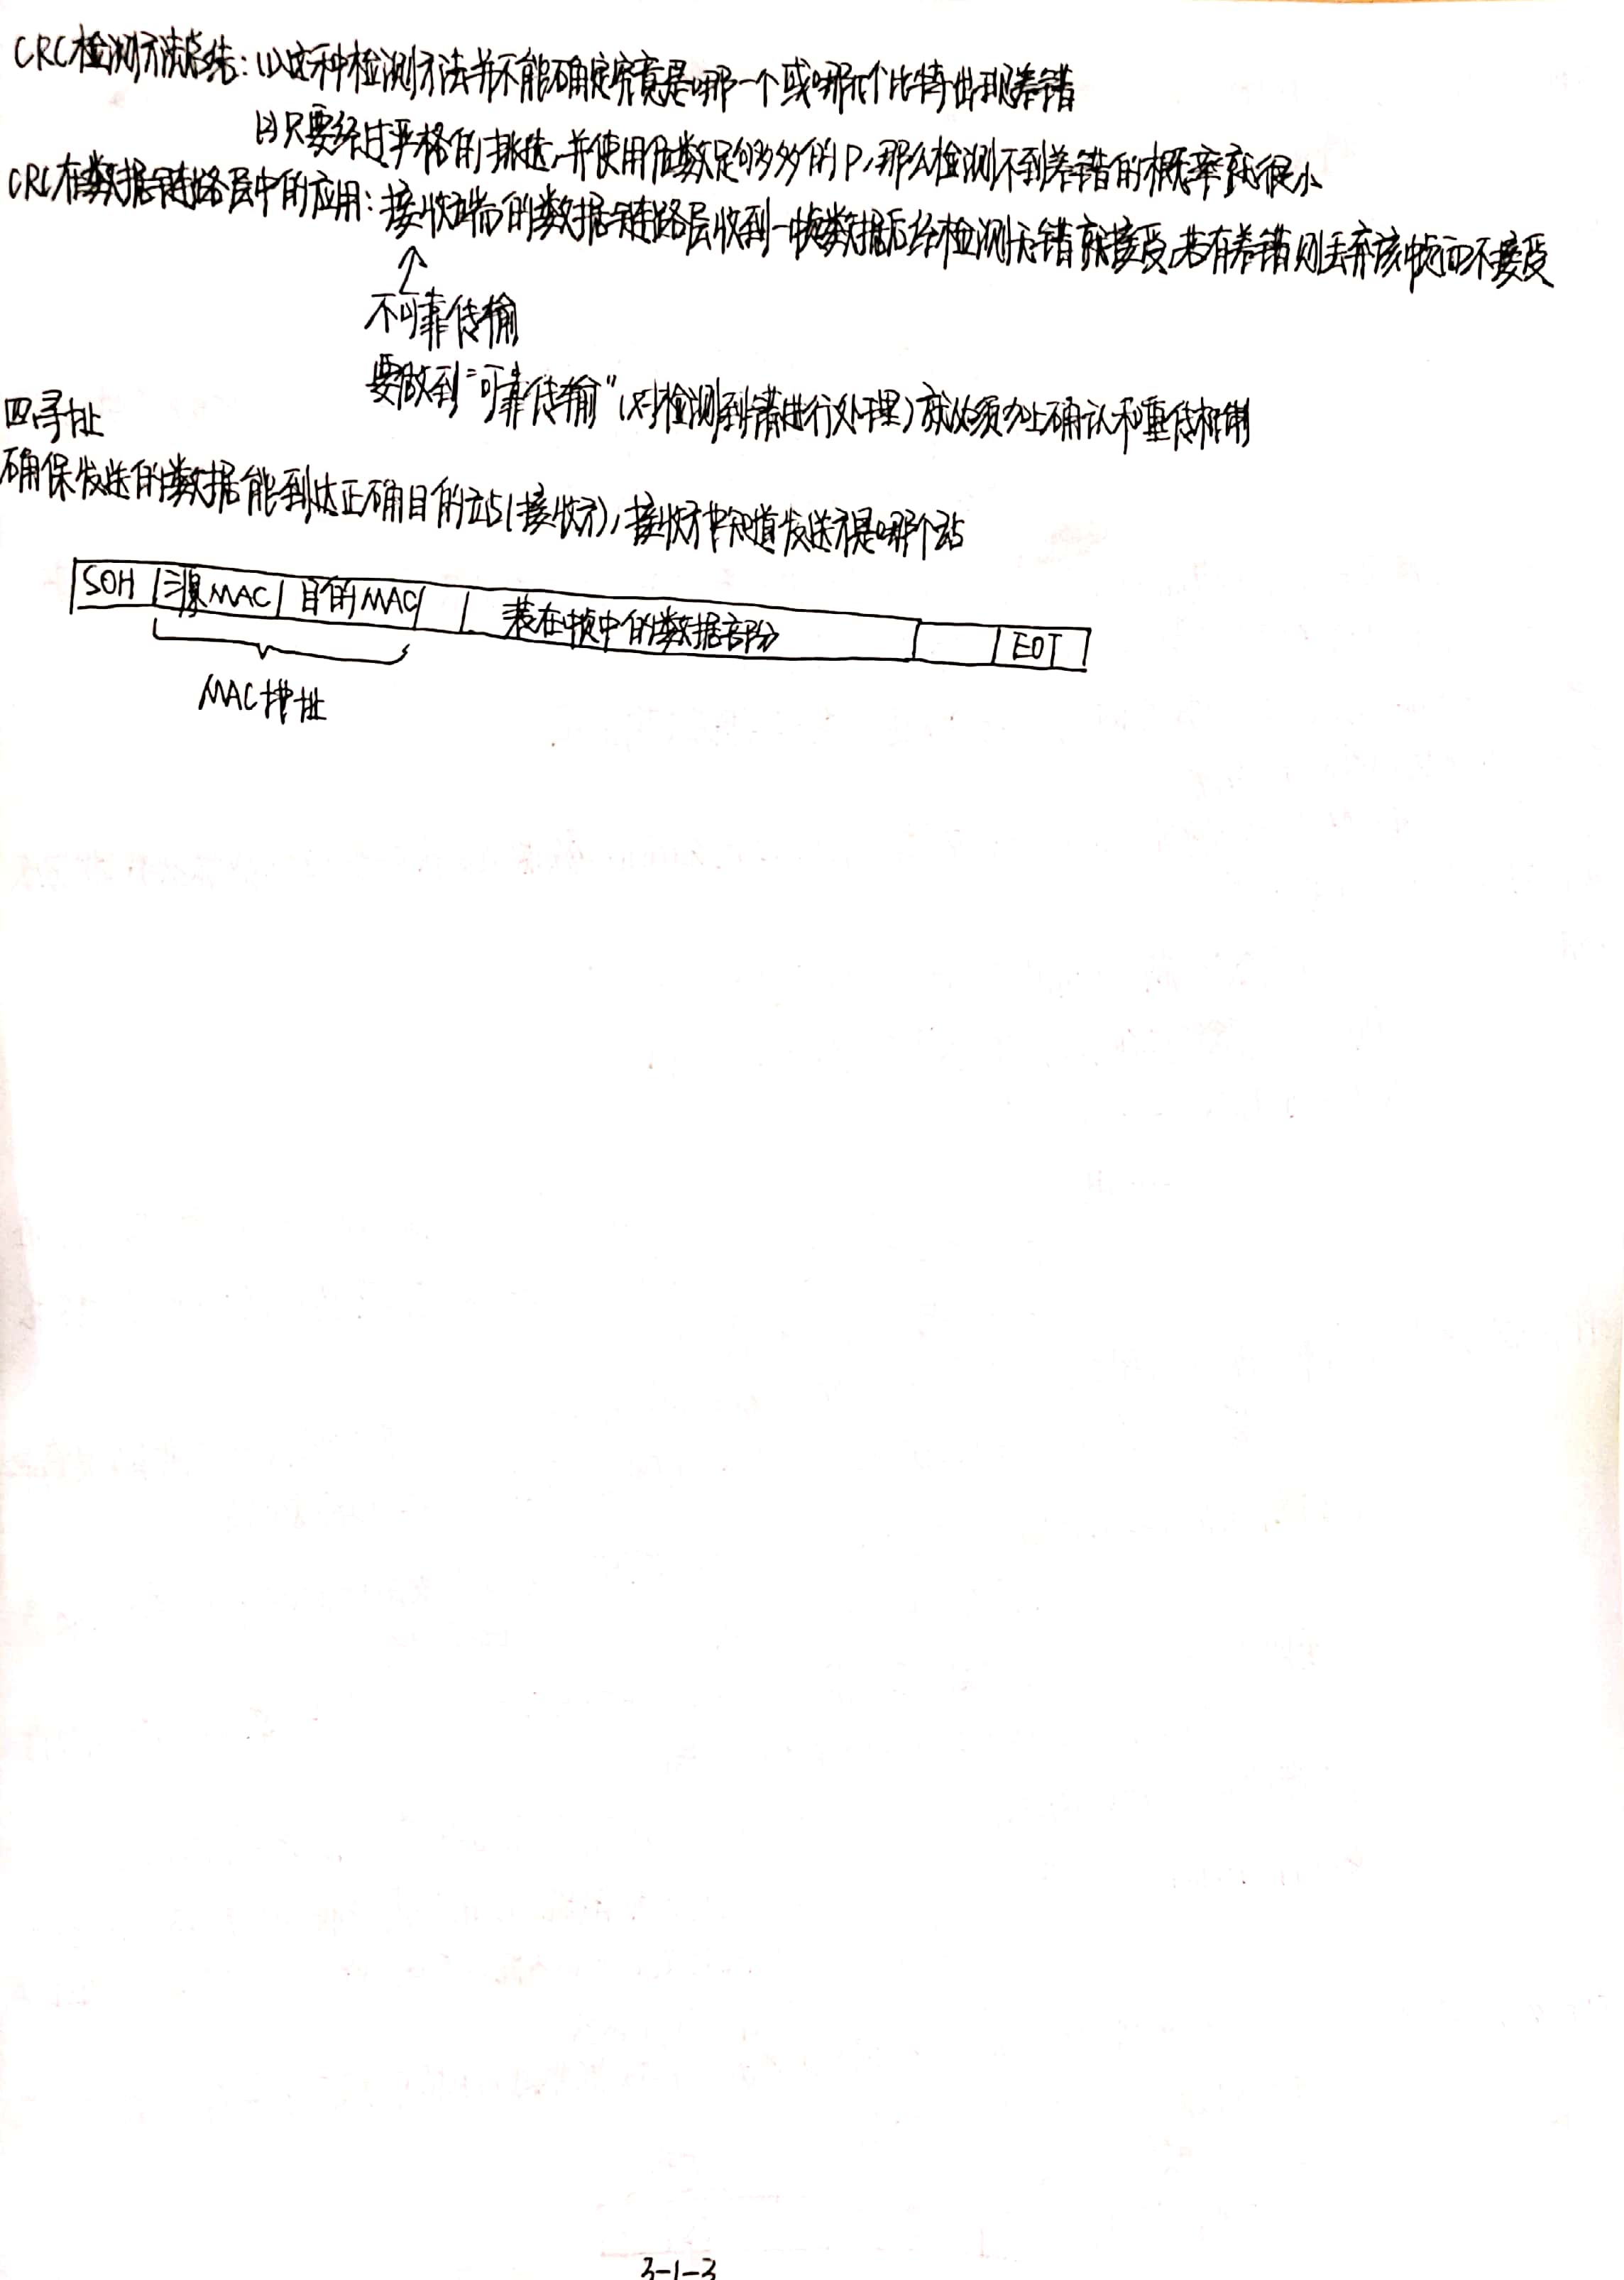 CRC检测方法总结：(1)这种检测方法并不能确定究竟是哪一个或哪几个比特出现差错
(2)只要经过严格的挑选，并使用位数足够多的P，那么检测不到差错的概率就很小
CRC在数据链路层中的应用：接收端的数据链路层收到一帧数据后经检测无错就接受，若有差错则丢弃该帧而不接受
不可靠传输
要做到"可靠传输"(对检测到错进行处理)就必须加上确认和重传机制
四.寻址
确保发送的数据能到达正确目的站(接收方)，接收方也知道发送方是哪个站
SOH 源MAC 目的MAC 装在帧中的数据部分 EOT
MAC地址
3-1-3